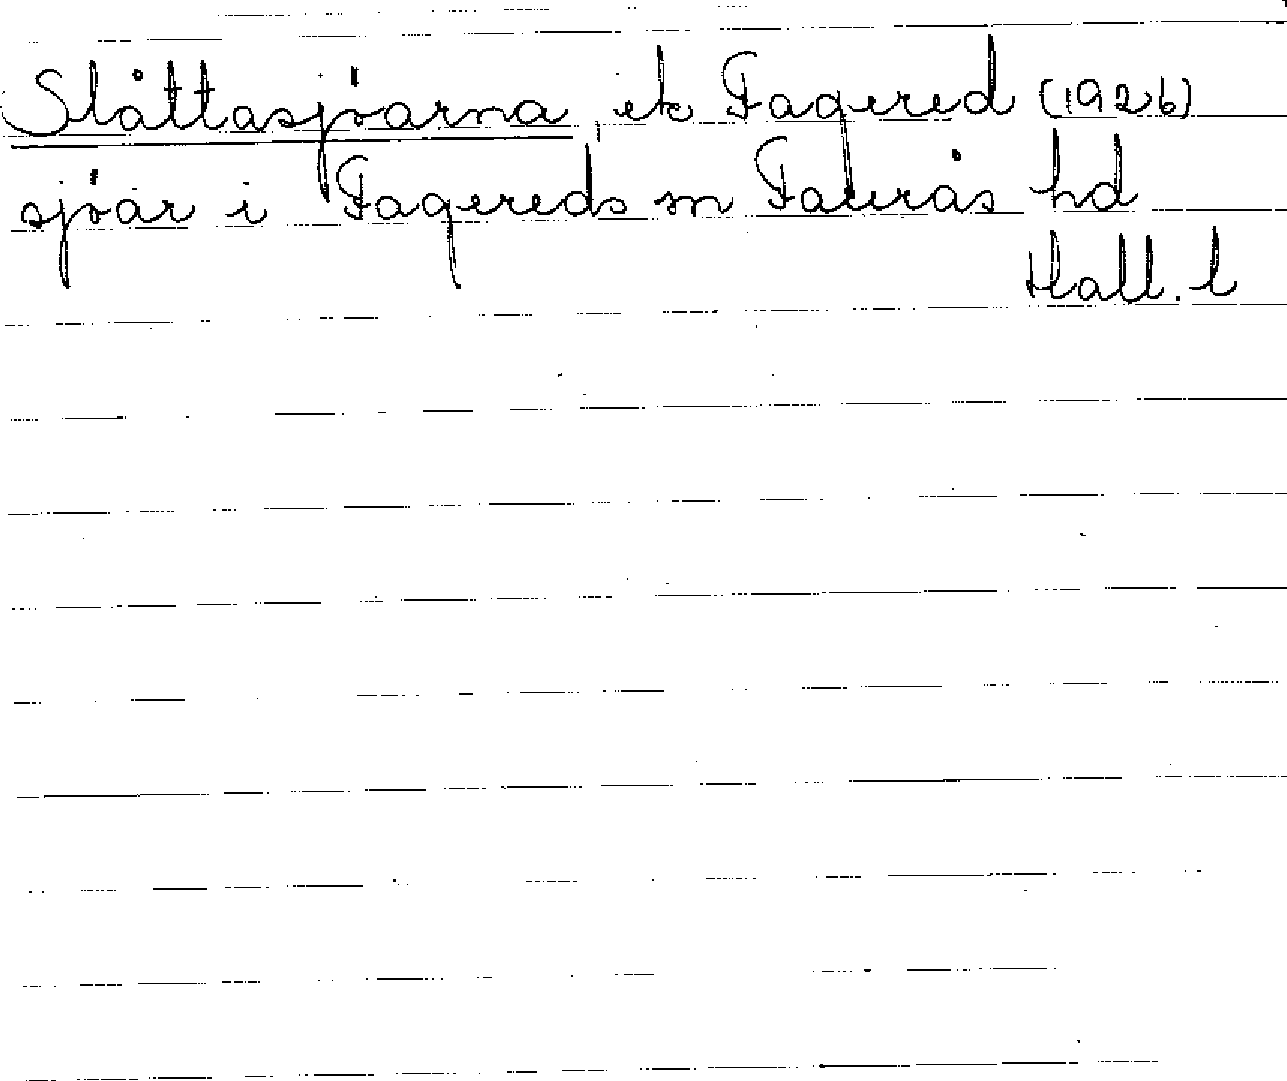 Slåttasjöarna, ek Fagered (1926)
sjöar i Fagereds sn Faurås hd
Hall. l